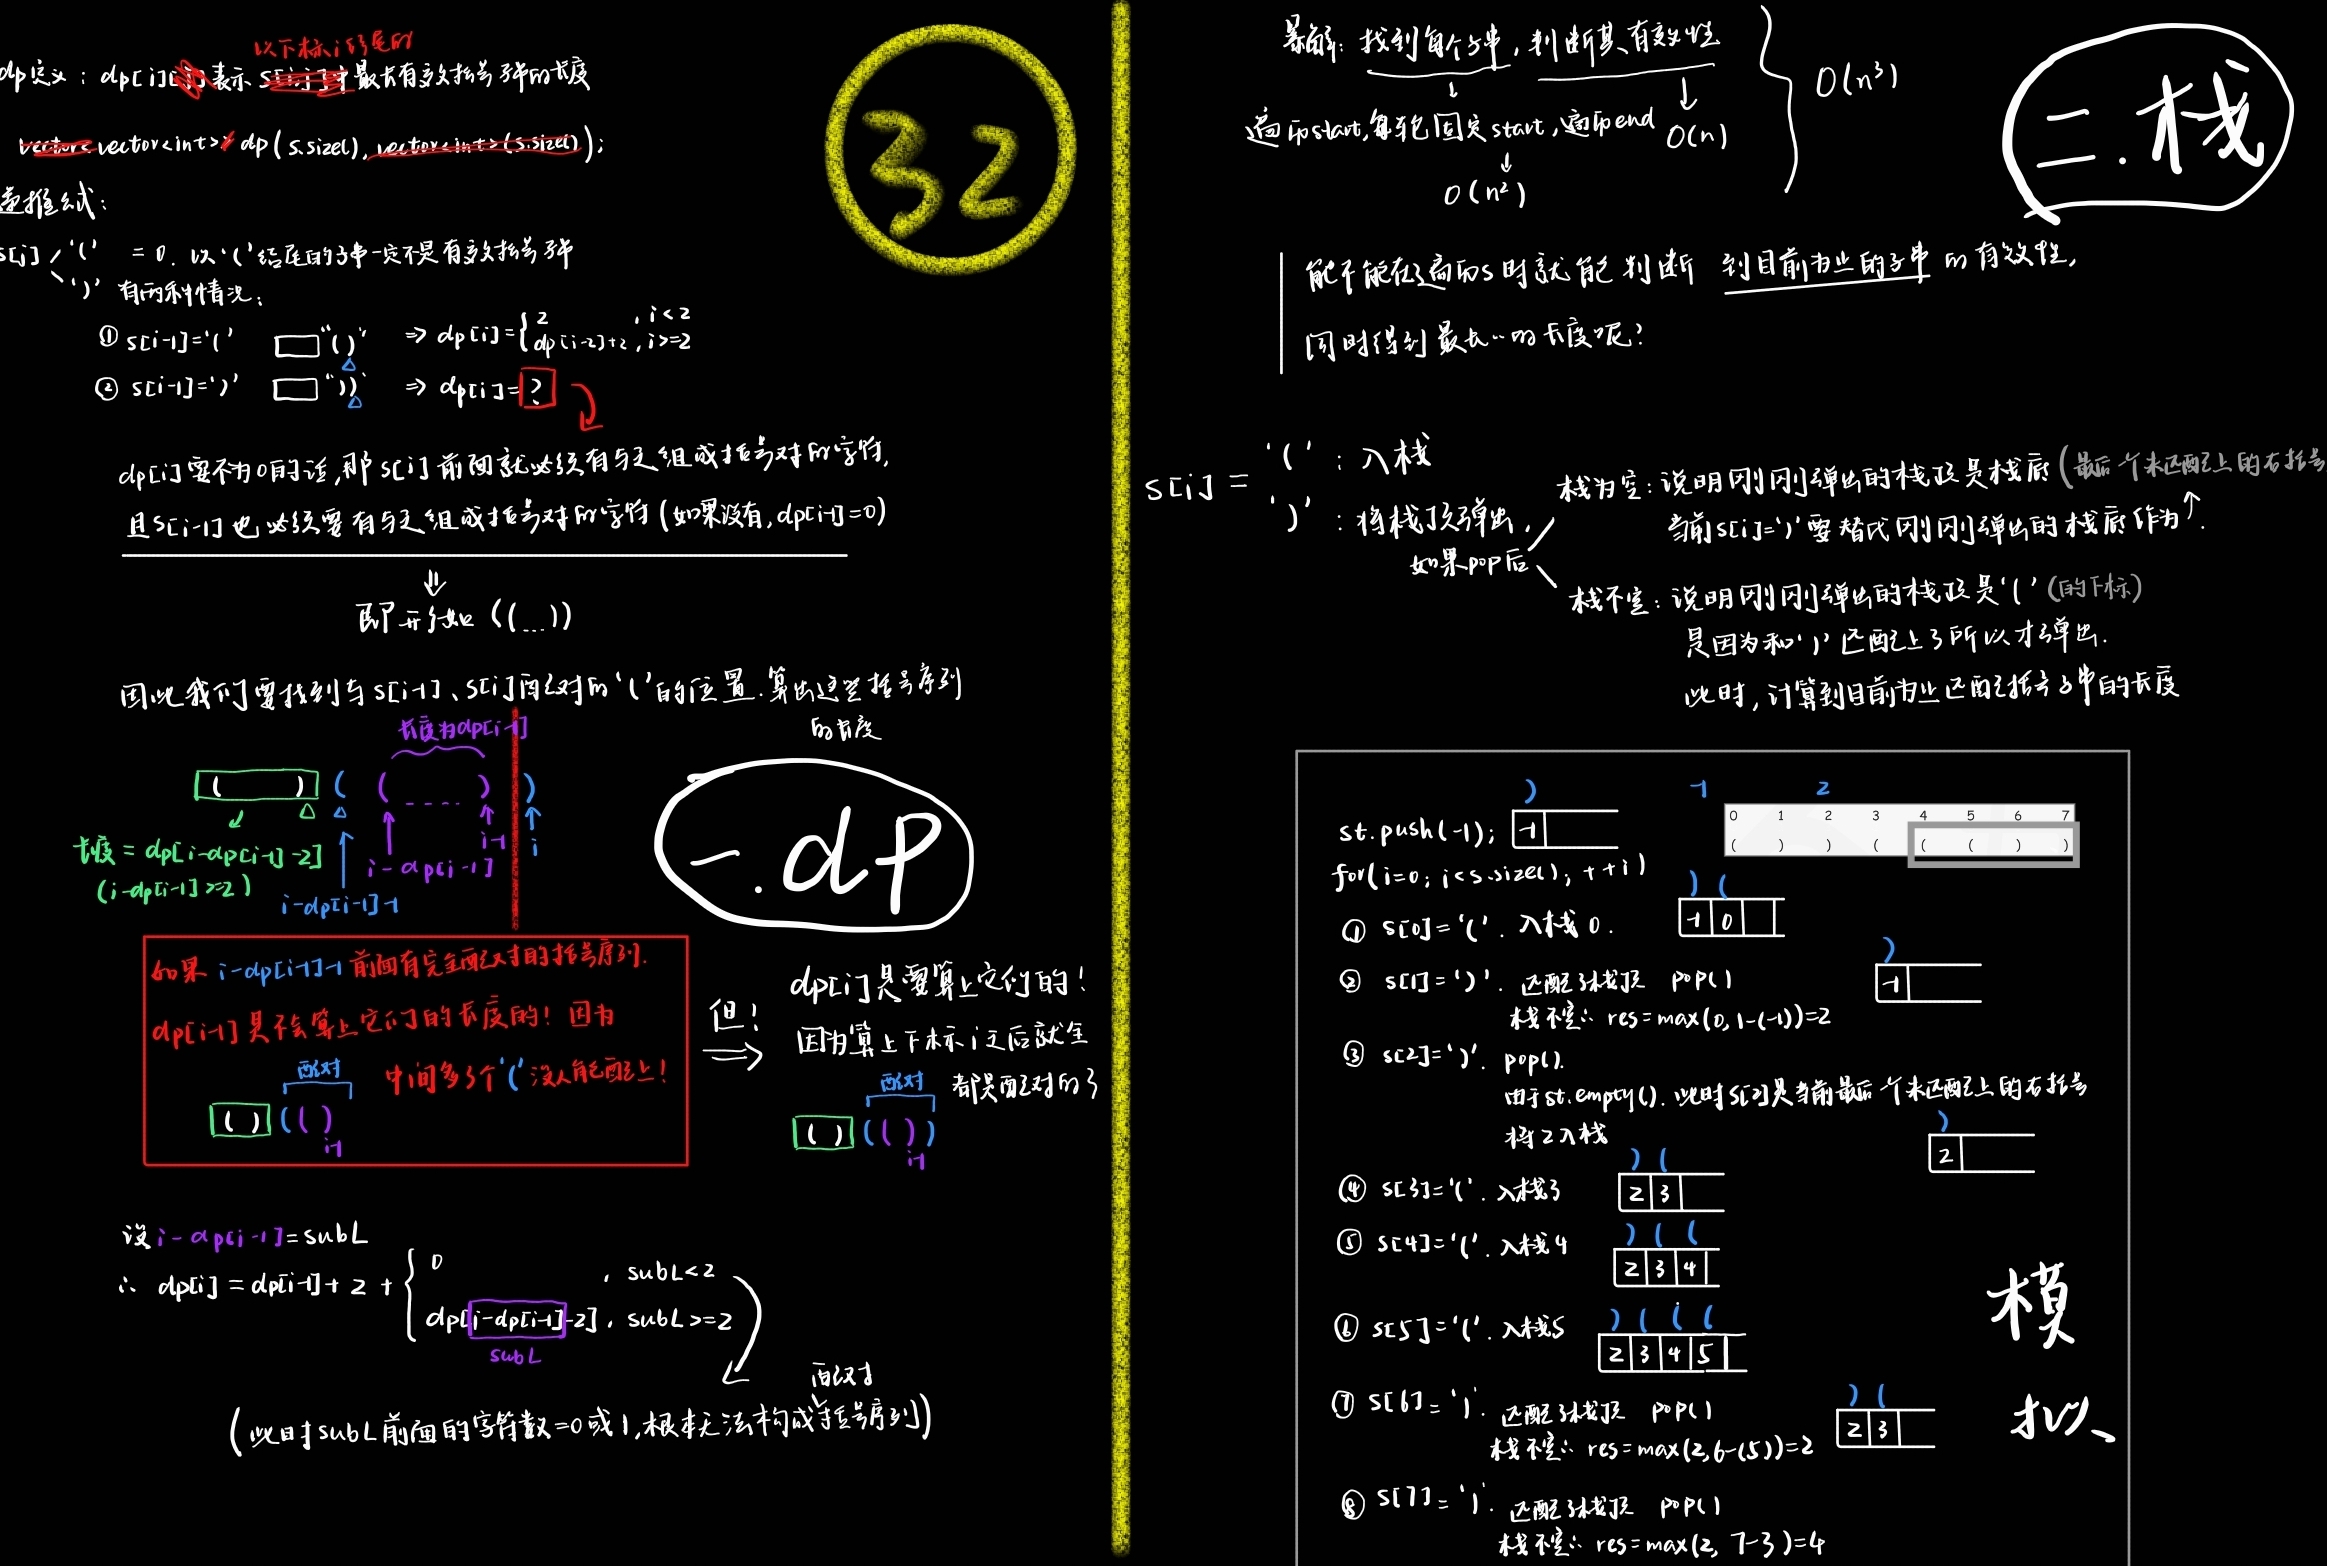 以下标i结尾的
dp定义：dp[i][j]表示 s[i:j]中 最长有效括号子串的长度
vector<vector<int>> dp(s.size(), vector<int>(s.size()));
递推公式：
s[i] '(' = 0. 以'('结尾的子串一定不是有效括号子串
')' 有两种情况：
① s[i-1]='(' "()" ⇒ dp[i]={ 2 , i<2
dp[i-2]+2 , i>=2
② s[i-1]=')' "))" ⇒ dp[i]=?
dp[i]要不为0的话,那s[i]前面就必须有与之组成括号对的字符,
且s[i-1]也必须要有与之组成括号对的字符(如果没有,dp[i-1]=0)
⇓
即形如 ((...))
因此我们要找到与s[i-1]、s[i]配对的'('的位置.算出这些括号序列
的长度
长度为dp[i-1]
( ) ( ( ---- ) )
长度=dp[i-dp[i-1]-2]
(i-dp[i-1]>=2)
i-dp[i-1]-1
i-dp[i-1]
i-1
i
一.dp
如果 i-dp[i-1]-1 前面有完全配对的括号序列.
dp[i-1]是不会算上它们的长度的！因为
配对
中间多了个'('没人能配上！
( ) ( ( )
i-1
但！
⇒
dp[i]是要算上它们的！
因为算上下标i之后就全
都是配对的了
配对
( ) ( ( ) )
i-1
设i-dp[i-1]=subL
∴ dp[i]=dp[i-1]+2+{ 0 , subL<2
dp[i-dp[i-1]-2] , subL>=2
subL
配对
(此时subL前面的字符数=0或1,根本无法构成括号序列)
32
暴解：找到每个子串,判断其有效性
遍历start,每轮固定start,遍历end
O(n)
O(n²)
O(n³)
二.栈
能不能在遍历s时就能判断 到目前为止的子串的有效性,
同时得到最长..的长度呢？
s[i]= '('：入栈
')'：将栈顶弹出,
如果pop后
栈为空：说明刚刚弹出的栈顶是栈底(最后一个未匹配上的右括号
当前s[i]=')'要替代刚刚弹出的栈底作为↑.
栈不空：说明刚刚弹出的栈顶是'('(的下标)
是因为和')'匹配上了所以才弹出.
此时,计算到目前为止匹配括号子串的长度
)
st.push(-1); -1
-1 2
0 1 2 3 4 5 6 7
( ) ) ( ( ( ) )
for(i=0; i<s.size(); ++i)
) (
① s[0]='('. 入栈0. -1 0
)
② s[1]=')'. 匹配了栈顶 pop() -1
栈不空∴ res=max(0,1-(-1))=2
③ s[2]=')'. pop().
由于st.empty(). 此时s[2]是当前最后一个未匹配上的右括号
将2入栈
)
2
) (
④ s[3]='('. 入栈3 2 3
) ( (
⑤ s[4]='('. 入栈4 2 3 4
) ( ( (
⑥ s[5]='('. 入栈5 2 3 4 5
) (
⑦ s[6]=')'. 匹配了栈顶 pop() 2 3
栈不空∴ res=max(2,6-(5))=2
⑧ s[7]=')'. 匹配了栈顶 pop()
栈不空∴ res=max(2,7-3)=4
模
拟